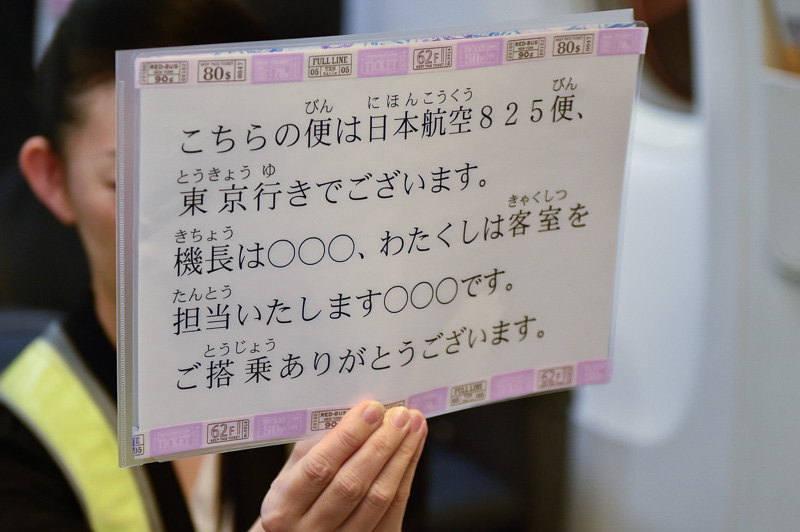 RED-BUS 90¢ 80$ FULL LINE 05 05 TICKET 62F RED-BUS 90¢ 80$
びん にほんこうくう びん
こちらの便は日本航空825便、
とうきょう ゆ
東京行きでございます。
きちょう きゃくしつ
機長は〇〇〇、わたくしは客室を
たんとう
担当いたします〇〇〇です。
とうじょう
ご搭乗ありがとうございます。
05 TICKET 62F RED-BUS 90 FULL LINE 62F